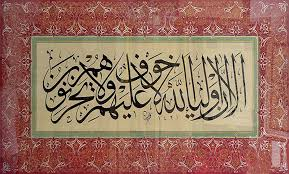 ألا إن أولياء الله لا خوف عليهم ولا هم يحزنون